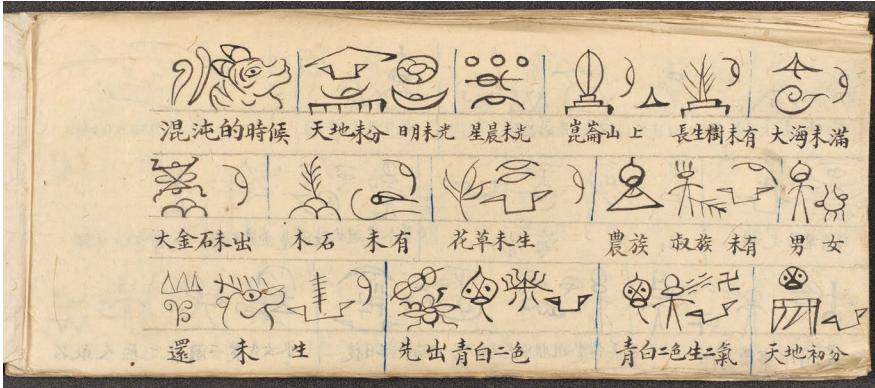 混沌的時候 天地未分 日明未光 星晨未光 崑崙山上 長生樹未有 大海未滿
大金石未出 木石未有 花草未生 農族 叔族 未有 男女
還未生 先出青白二色 青白二色生二氣 天地初分